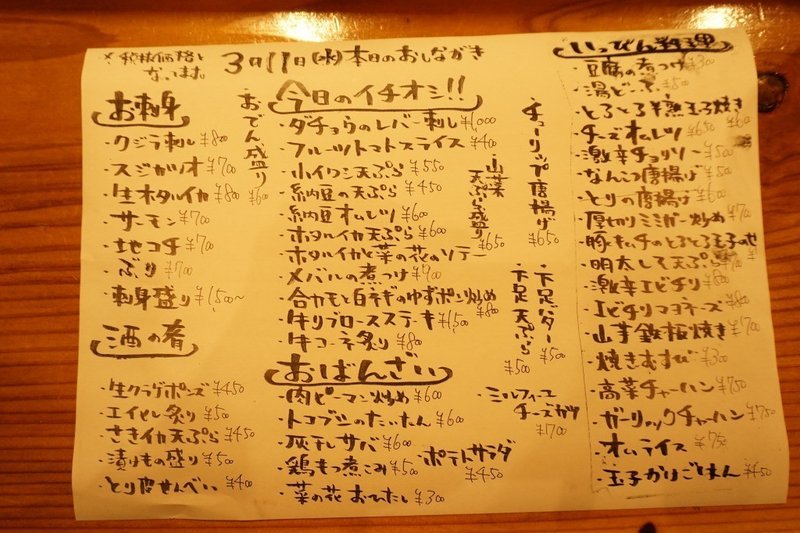 ※税抜価格と
なってます。
3月11日(水)本日のおしながき
お刺身
・クジラ刺し ¥800
・スジガツオ ¥700
・生ホタルイカ ¥800
・サーモン ¥700
・地コチ ¥700
・ぶり ¥700
・刺身盛り ¥1,500~
・おでん盛り ¥600
酒の肴
・生クラゲポンズ ¥450
・エイヒレ炙り ¥500
・さきイカ天ぷら ¥450
・漬けもの盛り ¥500
・とり皮せんべい ¥400
今日のイチオシ!!
・ダチョウのレバー刺し ¥1,000
・フルーツトマトスライス ¥400
・小イワシ天ぷら ¥550
・納豆の天ぷら ¥450
・納豆オムレツ ¥600
・ホタルイカ天ぷら ¥600
・ホタルイカと菜の花のソテー
・メバルの煮つけ ¥900
・合カモと白ネギのゆずポン炒め ¥800
・牛リブロースステーキ ¥1,500
・牛コーネ炙り ¥800
・山菜天ぷら盛り ¥650
・チューリップ唐揚げ ¥650
・下足バター ¥500
・下足天ぷら ¥500
おばんざい
・肉ピーマン炒め ¥600
・トコブシのたいたん ¥600
・灰干しサバ ¥600
・鶏もつ煮こみ ¥500
・菜の花おひたし ¥300
・ポテトサラダ ¥450
・ミルフィーユ
チーズカツ ¥700
いっぴん料理
・豆腐の煮つけ ¥300
・湯どうふ ¥500
・とろとろ半熟玉子焼き ¥600
・チーズオムレツ ¥650
・激辛チョリソー ¥500
・なんこつ唐揚げ ¥500
・とりの唐揚げ ¥600
・厚切りミミガー炒め ¥700
・豚キムチのとろとろ玉子のせ
・明太しそ天ぷら
・激辛エビチリ ¥800
・エビチリマヨネーズ ¥800
・山芋鉄板焼き ¥700
・焼きおむすび ¥300
・高菜チャーハン ¥750
・ガーリックチャーハン ¥750
・オムライス ¥750
・玉子かけごはん ¥450